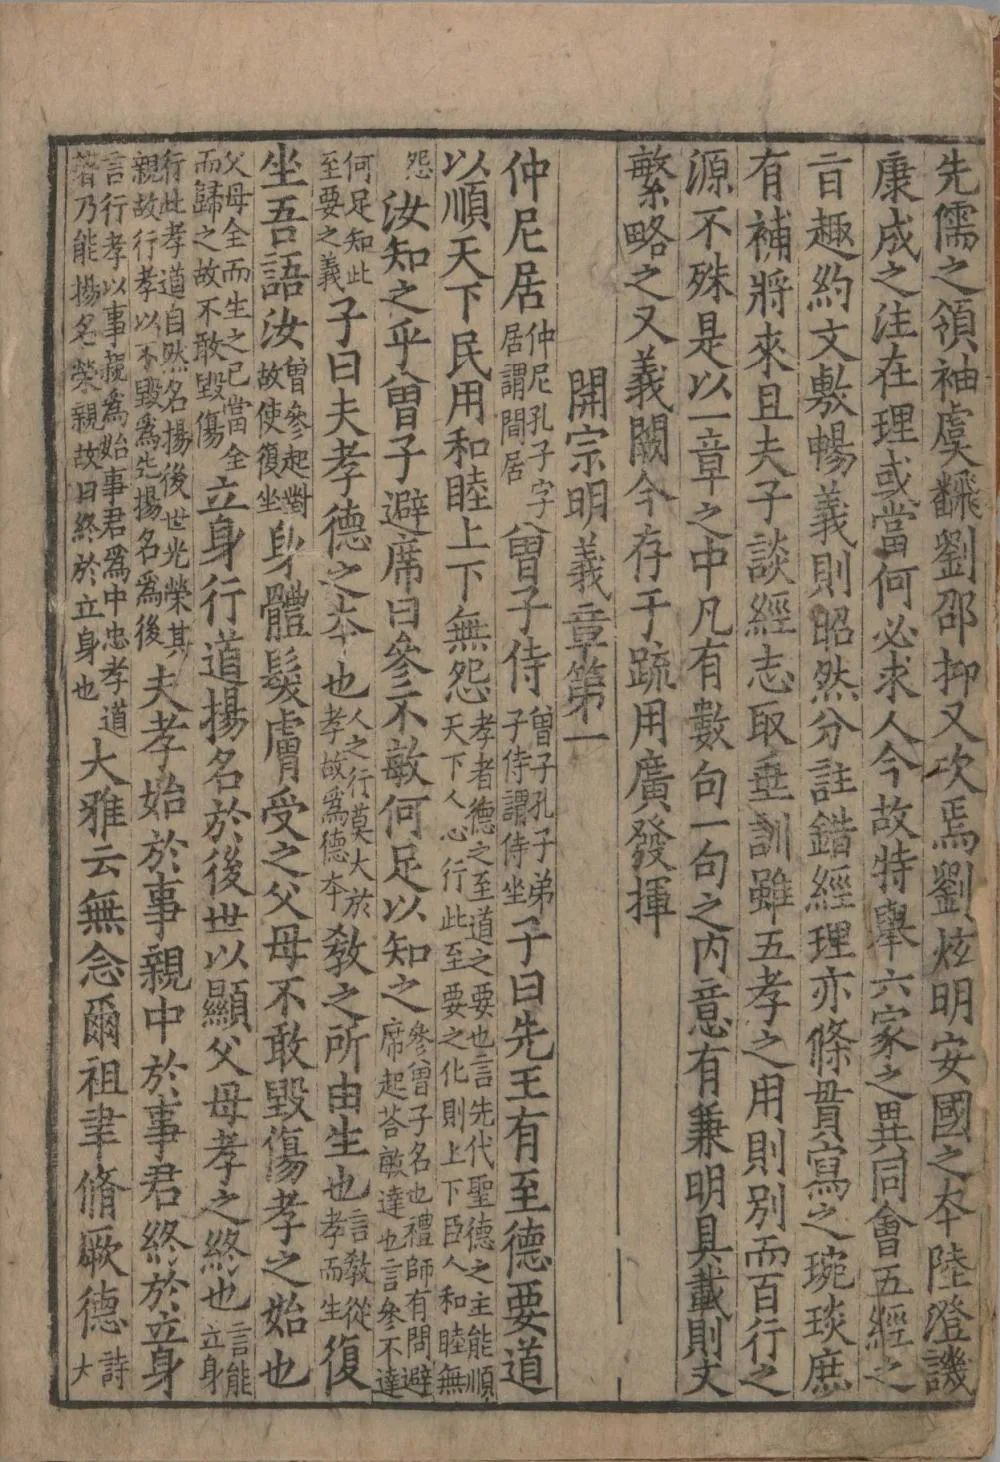 先儒之領袖虞飜劉邵抑又次焉劉炫明安國之本陸澄譏
康成之注在理或當何必求人今故特舉六家之異同會五經之
旨趣約文敷暢義則昭然分註錯經理亦條貫寫之琬琰庶
有補將來且夫子談經志取垂訓雖五孝之用則別而百行之
源不殊是以一章之中凡有數句一句之內意有兼明具載則文
繁略之又義闕今存于疏用廣發揮
開宗明義章第一
仲尼居仲尼孔子字居謂間居曾子侍曾子孔子弟子侍謂侍坐子曰先王有至德要道
以順天下民用和睦上下無怨孝者德之至道之要也言先代聖德之主能順天下人心行此至要之化則上下臣人和睦無
怨汝知之乎曾子避席曰參不敏何足以知之參曾子名也禮師有問避席起荅敏達也言參不達
何足知此至要之義子曰夫孝德之本也人之行莫大於孝故爲德本教之所由生也言教從孝而生復
坐吾語汝曾參起對故使復坐身體髮膚受之父母不敢毀傷孝之始也
父母全而生之己當全而歸之故不敢毀傷立身行道揚名於後世以顯父母孝之終也言能立身
行此孝道自然名揚後世光榮其親故行孝以不毀爲先揚名爲後夫孝始於事親中於事君終於立身
言行孝以事親爲始事君爲中忠孝道著乃能揚名榮親故曰終於立身也大雅云無念爾祖聿脩厥德詩大